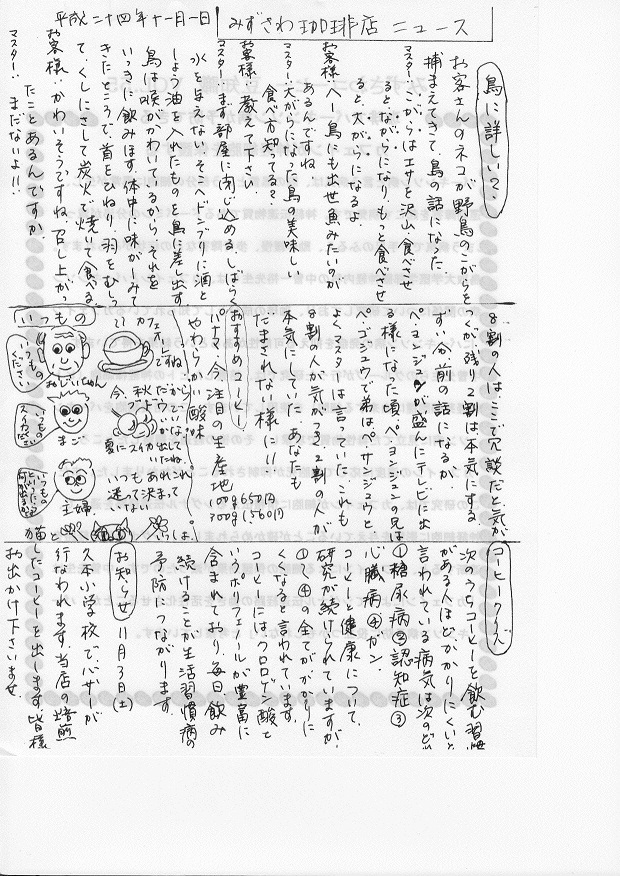 平成二十四年十一月一日
みずさわ珈琲店 ニュース
鳥に詳しい？
お客さんのネコが野鳥のこがらを
捕まえてきて、鳥の話になった
マスター:こがらはエサを沢山食べさせ
ると、ながらになりもっと食べさせ
ると、大がらになるよ。
お客様:へー鳥にも出世魚みたいのが
あるんですね。
マスター:大がらになった鳥の美味しい
食べ方知ってる？
お客様:教えて下さい
マスター:まず部屋に閉じ込める。しばらく
水を与えない。そこへドンブリに酒と
しょう油を入れたものを鳥に差し出す。
鳥は喉がかわいてるから、それを
いっきに飲みほす。体中に味がしみて
きたところで、首をひねり、羽をむしっ
て、くしにさして炭火で焼いて食べる。
お客様:かわいそうですね、召し上がっ
たことあるんですか
マスター:まだないよ!!
8割の人は、ここで冗談だと気が
つくが残り2割は本気にする
ずい分前の話になるが
ペ・ヨンジュンが盛にテレビに出
る様になった頃、ペヨンジュンの兄は
ペゴジュウで弟はペサンジュウと
よくマスターは言っていた、これも
8割の人が気がつき2割の人が
本気にしていた、あなたも
だまされない様に!!
おすすめコーヒー
パナマ・今、注目の生産地
やわらかい酸味
100g 650円
300g 1,560円
いつもの
いつもの
ください
おじいちゃん
まご
主婦
猫
コーヒークイズ
次のうちコーヒーを飲む習慣
がある人ほどかかりにくいと
言われている病気は次のどれ
①糖尿病②認知症③
心臓病④ガン
コーヒーと健康について、
研究が続けられていますが、
①〜④の全てがかかりに
くくなると言われています。
コーヒーにはクロロゲン酸と
いうポリフェノールが豊富に
含まれており毎日飲み
続けることが生活習慣病の
予防につながります。
お知らせ 11月3日(土)
久本小学校で、バザーが
行なわれます。当店の焙煎
したコーヒーを出します皆様
お出かけ下さいませ